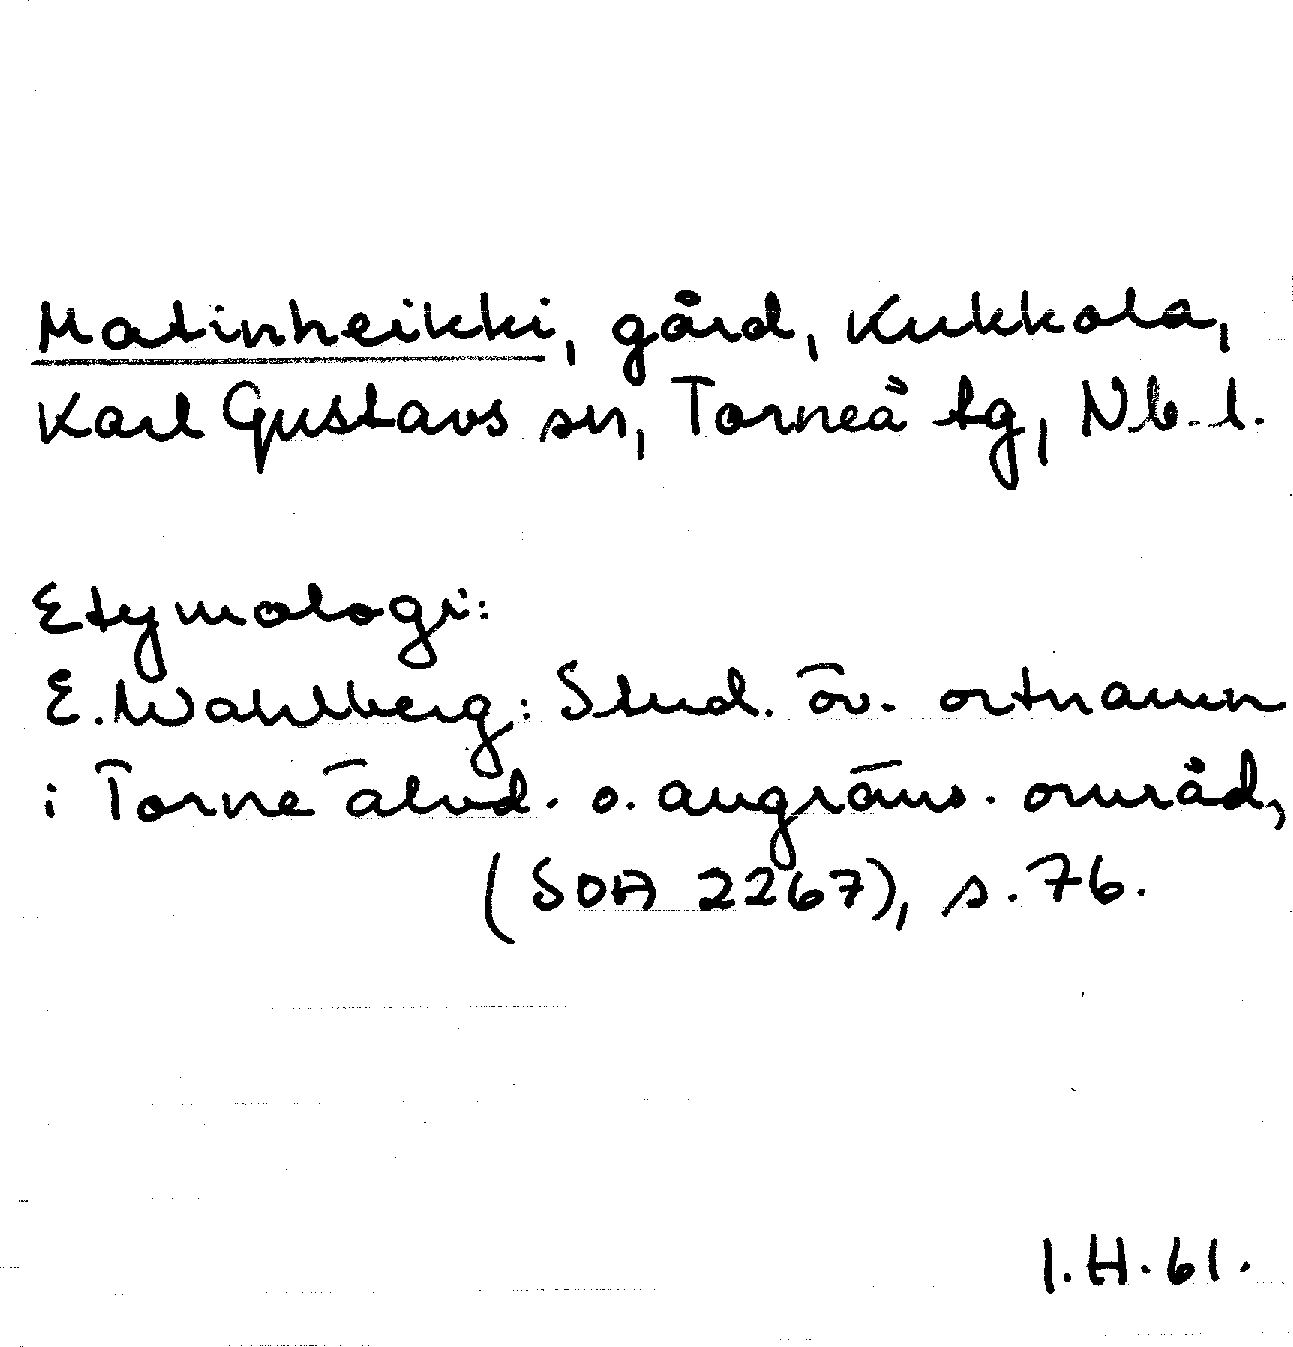 Matinheikki, gård, Kukkola,
Karl Gustavs sn, Torneå tg, Nb. l.
Etymologi:
E. Wahlberg: Stud. öv. ortnamn
i Torne älvd. o. angräns. områd,
(SOA 2267), s. 76.
I.H. 61.